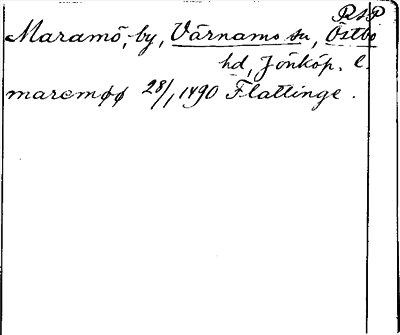 RSP
Maramö, by, Värnamo su, Östbo
hd, Jönköp. l.
maremøø 28/1 1490 Flattinge.